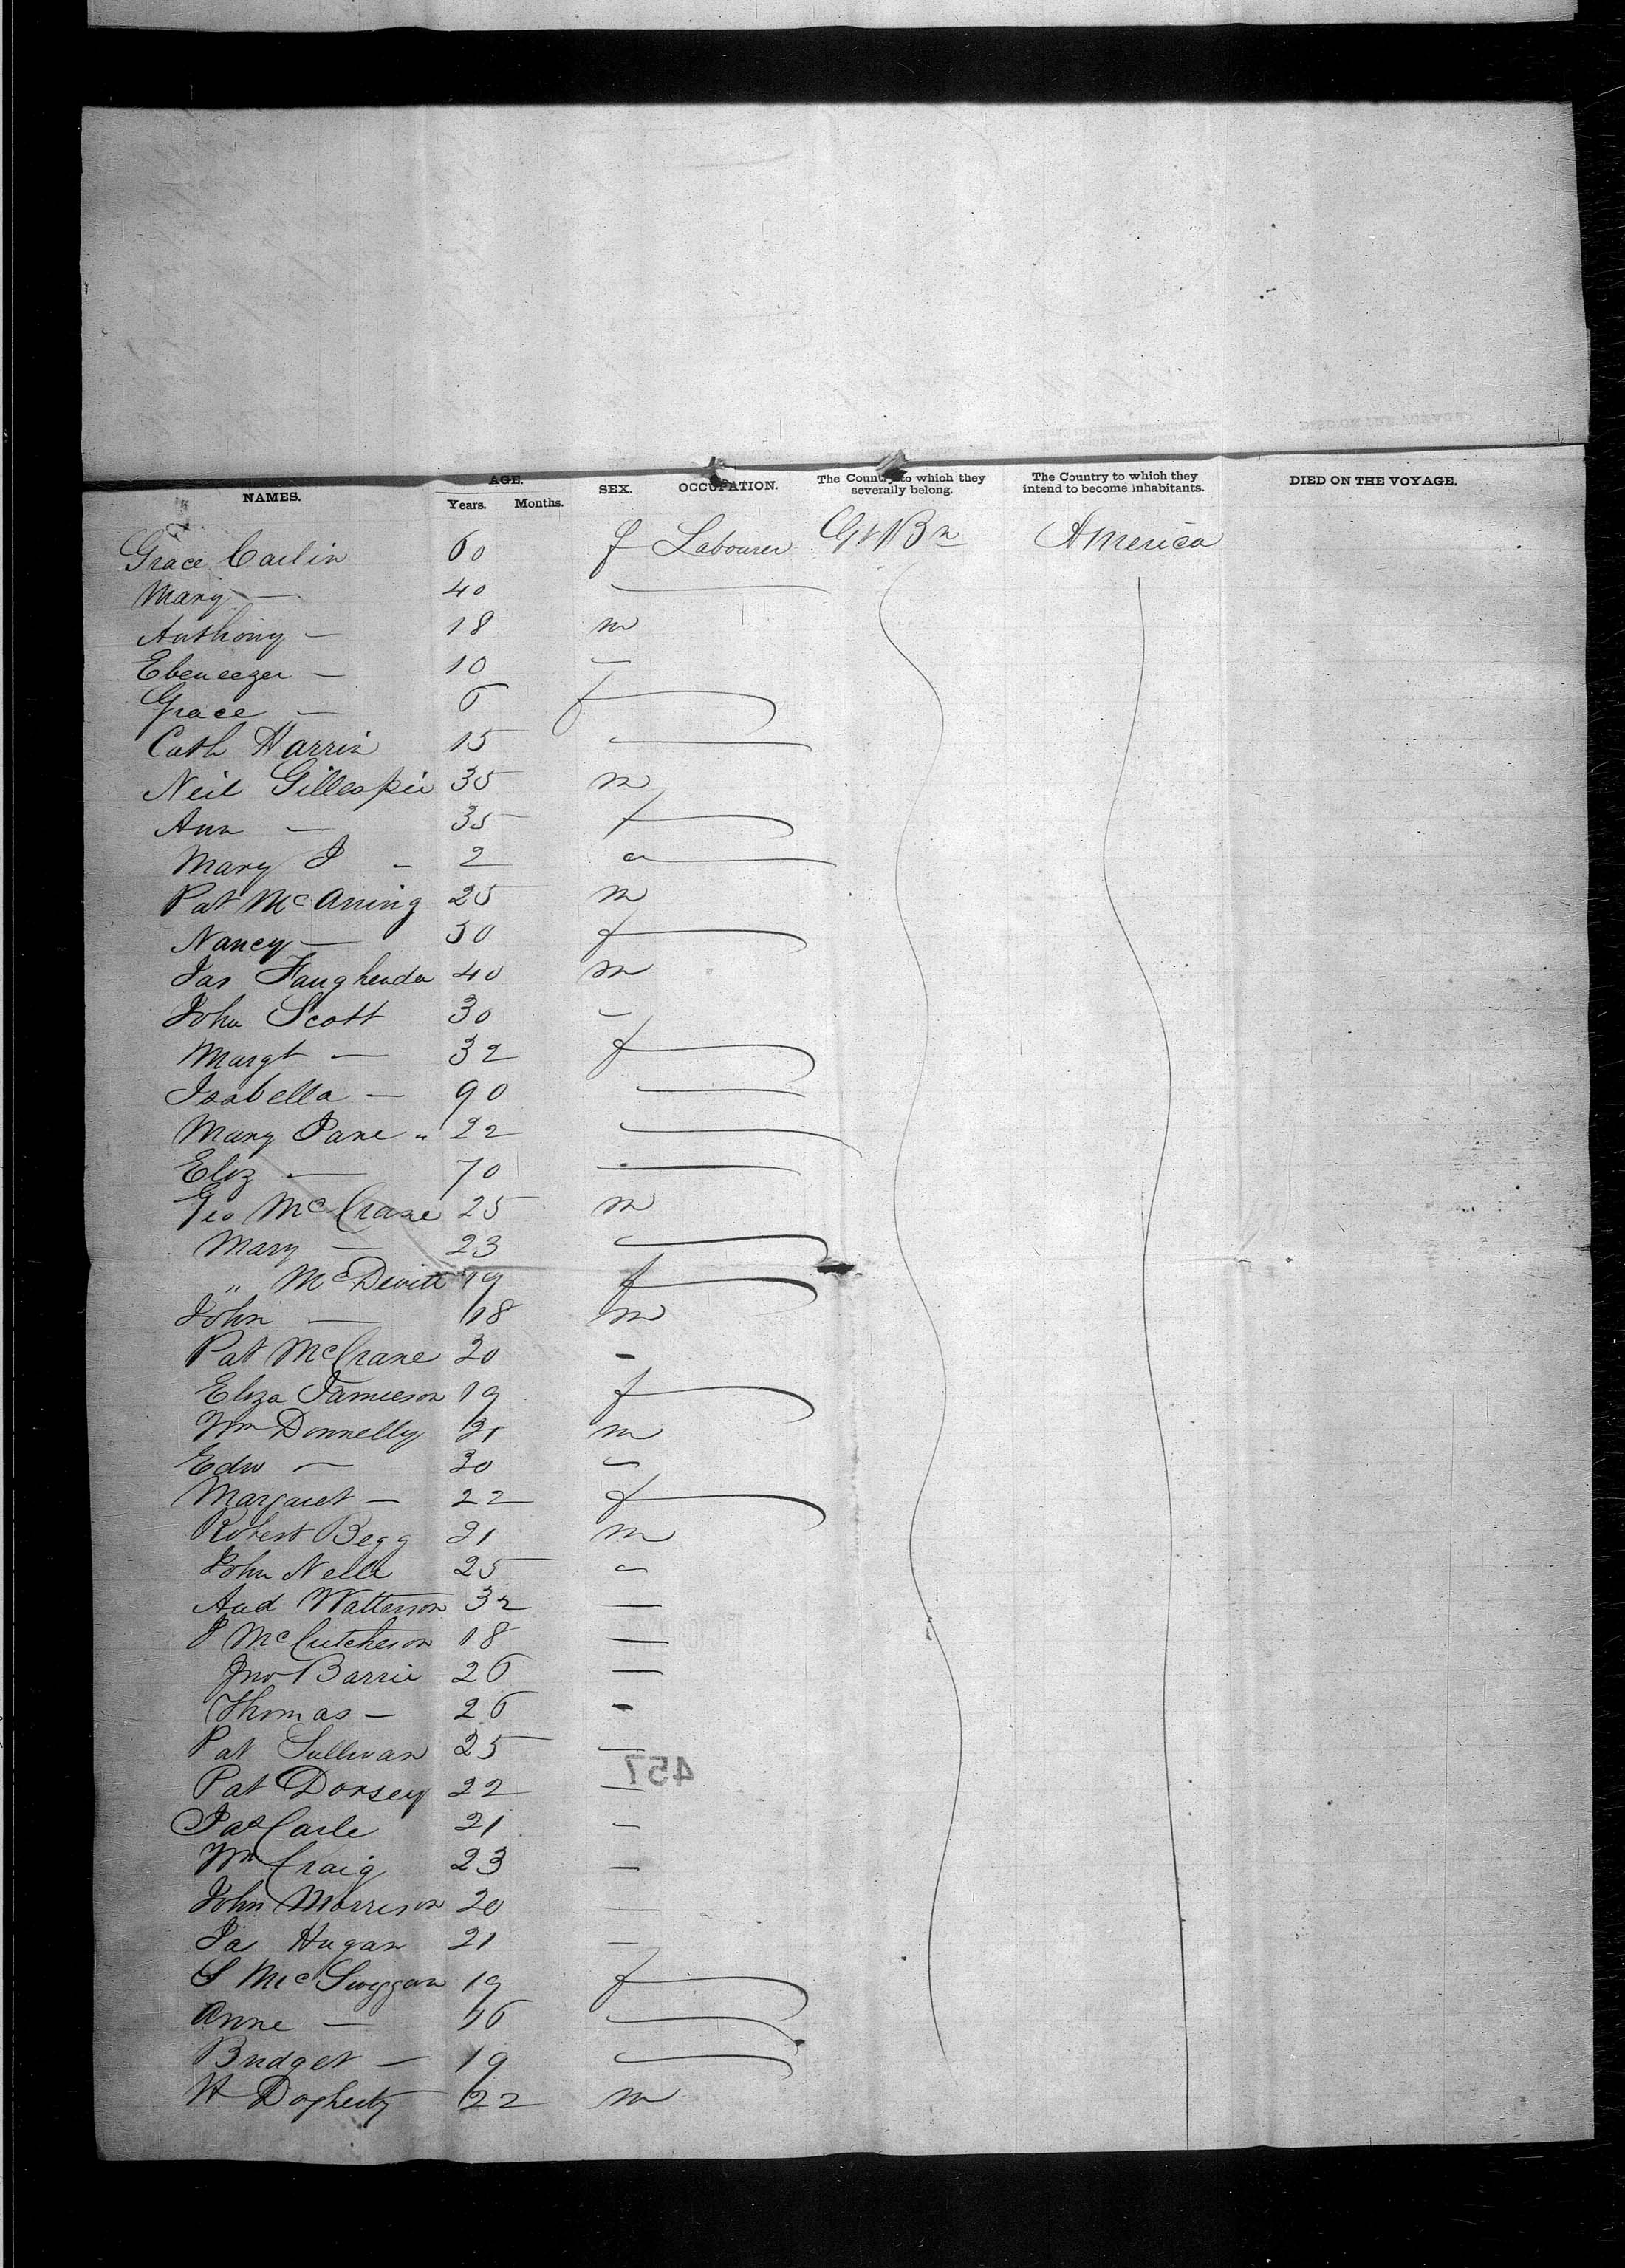 NAMES. AGE. Years. Months. SEX. OCCUPATION. The Country to which they severally belong. The Country to which they intend to become inhabitants. DIED ON THE VOYAGE.
Grace Carlin 60 f Labourer Gt Bn America
Mary — 40
Anthony — 18 m
Ebeneezer — 10 —
Grace — 6 f
Cath Harris 15
Neil Gillespie 35 m
Ann — 35 f
Mary J — 2
Pat McAning 25 m
Nancy — 30 f
Jas 40 m
John Scott 30 —
Margt — 32 f
Isabella — 90
Mary Jane " 22
Eliz — 70
Geo McCrane 25 m
Mary — 23
" McDevitt 19 f
John — 18 m
Pat McCrane 20 -
Eliza Jamieson 19 f
Wm Donnelly 21 m
Edw — 30 -
Margaret — 22 f
Robert Begg 21 m
John Neill 25 -
And Watterson 32 —
J McCutcheson 18 —
Jno Barrie 26 —
Thomas — 26 -
Pat Sullivan 25 —
457
Pat Dorsey 22 —
Carle 21 -
Wm Craig 23 —
John Morrison 20 —
Ja Hugan 21 —
S McSwiggan 19 f
Anne — 16
Bridget — 19
H Dogherty 22 m